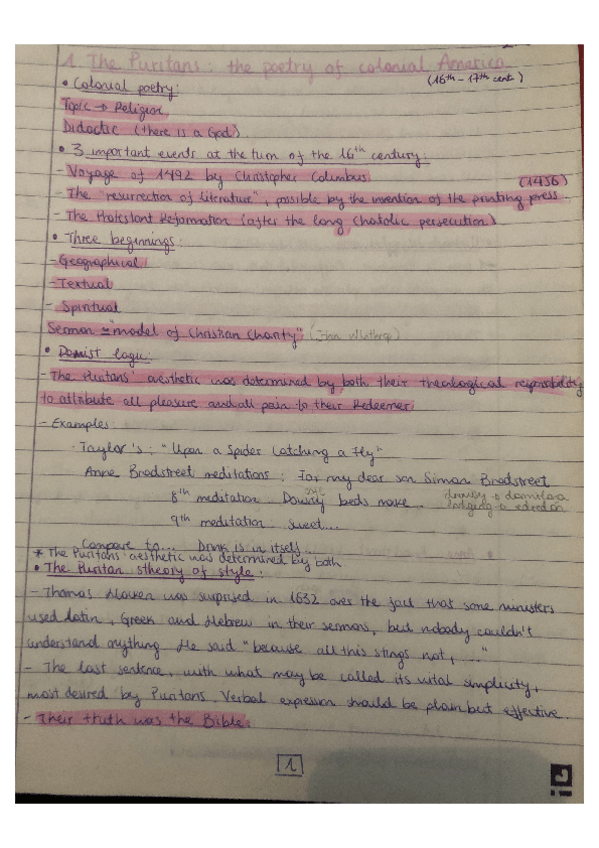 1. The Puritans: the poetry of colonial America
(16th - 17th cent.)
• Colonial poetry:
Topic → Religion
Didactic (there is a God)
• 3 important events at the turn of the 16th century:
- Voyage of 1492 by Christopher Columbus
(1456)
- The "resurrection of literature", possible by the invention of the printing press...
- The Protestant Reformation (after the long Chatolic persecution)
• Three beginnings:
- Geographical
- Textual
- Spiritual
Sermon "model of Christian Charity" (John Winthrop)
• logic:
- The Puritans' aesthetic was determined by both their theological responsibility
to attribute all pleasure and all pain to their Redeemer
- Examples:
· Taylor's: "Upon a Spider Catching a Fly"
Anne Bradstreet meditations: For my dear son Simon Bradstreet
8th meditation... Downy beds make...
9th meditation sweet...
Compare to... Drink is in itself...
* The Puritans' aesthetic was determined by both
• The Puritan stheory of style:
- Thomas was surprised in 1632 over the fact that some ministers
used Latin, Greek and Hebrew in their sermons, but nobody couldn't
understand anything He said "because all this stings not, ..."
- The last sentence, with what may be called its vital simplicity,
most desired by Puritans. Verbal expression should be plain but effective.
- Their truth was the Bible.
1